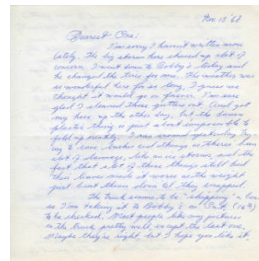 Nov 18 '68
Dearest One:
I'm sorry I haven't written more
lately. The big storm here stirred up a lot of
concern. I went down to Bobby's today and
he changed the tires for me. The weather was
so wonderful here for so long, I guess we
thought it would go on forever. I'm sure
glad I cleaned those gutters out. And got
my hose up the other day, but the darn
plastic thing is just about impossible to
fold up neatly. I was around yesterday
to some leaves and things as there's
a lot of damage, with no storms, and the
fact that a lot of those things still had
their leaves made it worse as the weight
just bent them down til they snapped
The truck seems to be
so I'm taking it to Bobby's on Sat. (16th)
to be checked. Most people like my picture
in the truck pretty well, except the last one.
Maybe they're right, but I hope you like it.